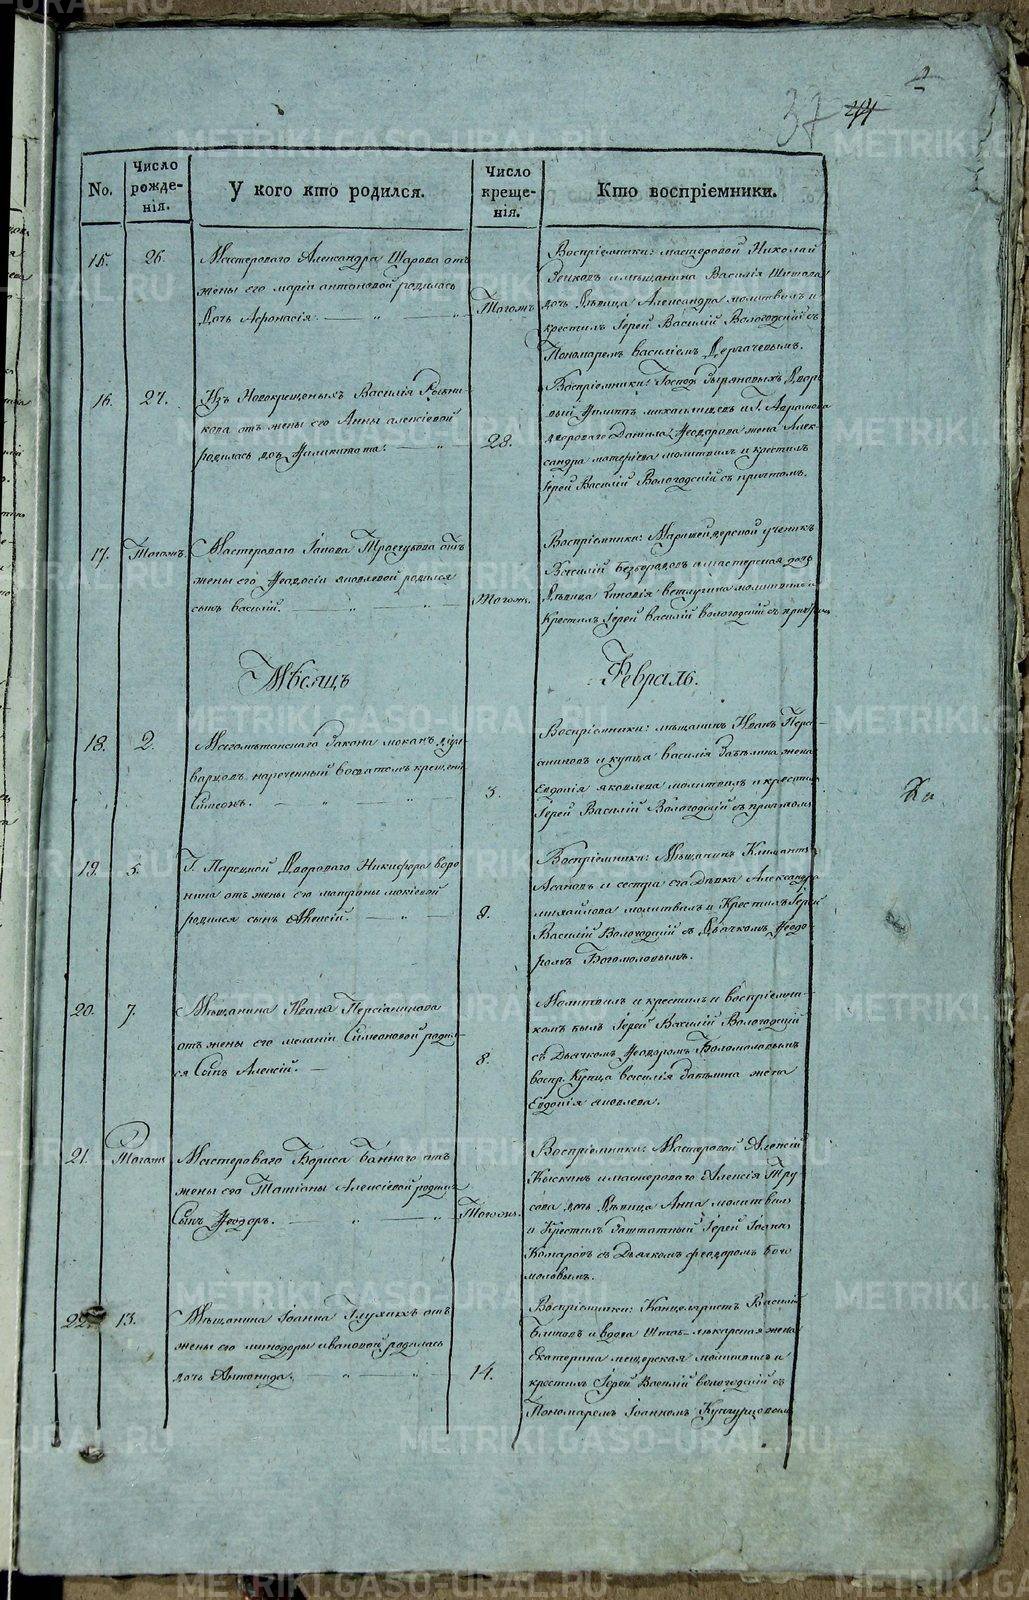 37 44
2
No.
Число рожде-
нія.
У кого кто родился.
Число креще-
нія.
Кто воспріемники.
15.
26.
Мастероваго Александра Шарова отъ
жены его маріи антоновой родилась
Дочь Афонасія.
Тогожъ
Воспріемники: мастеровой Николай
и мѣщанина Василія
дочь Дѣвица Александра молитвилъ и
крестилъ Іерей Василій Вологодскій съ
Пономаремъ василіемъ Дергачевымъ.
16.
27.
Изъ Новокрещеныхъ Василія
кова отъ жены его Анны алексіевой
родилась дочь
28.
Воспріемники: Господ. Зыряновыхъ Дворо-
вый Филиппъ и Г. Абрамова
двороваго Данила Ѳеодорова жена Алек-
сандра молитвилъ и крестилъ
Іерей Василій Вологодскій съ причтомъ.
17.
Тогожъ.
Мастероваго Іакова отъ
жены его Ѳеодосіи яковлевой родился
сынъ василій.
Тогожъ.
Воспріемники: ученикъ
Василій безбородовъ и мастерская дочь
Дѣвица ветлугина молитвилъ и
Крестилъ Іерей василій вологодскій съ
Мѣсяцъ
Февраль.
18.
2.
Магометанскаго Закона
нареченный во святомъ крещеніи
Симеонъ.
3.
Воспріемники: мѣщанинъ Иванъ Перси-
аниновъ и купца василія Забѣлина жена
Евдокія яковлева молитвилъ и крестилъ
Іерей Василій Вологодскій съ причтомъ.
19.
5.
Г. Двороваго Никифора воро-
нина отъ жены его матроны мокіевой
родился сынъ Алексій.
8.
Воспріемники: Мѣщанинъ Климантъ
Асановъ и сестра его Дѣвка Александра
михайлова молитвилъ и Крестилъ Іерей
Василій Вологодскій съ Дьячкомъ Ѳеодо-
ромъ Богомоловымъ.
20.
7.
Мѣщанина Ивана Персіанинова
отъ жены его меланіи Симеоновой родил-
ся Сынъ Алексій.
8.
Молитвилъ и крестилъ и воспріемни-
комъ былъ Іерей Василій Вологодскій
съ Дьячкомъ Ѳеодоромъ Богомоловымъ
воспр. Купца василія Забѣлина жена
Евдокія яковлева.
21.
Тогожъ
Мастероваго Бориса Баннаго отъ
жены его Татіаны Алексіевой родился
Сынъ Ѳеодоръ.
Тогожъ.
Воспріемники: Мастеровой Алексій
Кыскинъ и мастероваго Алексія Тру-
сова дочь Дѣвица Анна молитвилъ
и Крестилъ Заштатный Іерей Іоаннъ
Комаровъ съ Дьячкомъ феодоромъ Бого-
моловымъ.
22.
13.
Мѣщанина Іоанна Глухихъ отъ
жены его минодоры ивановой родилась
дочь Антонида.
14.
Воспріемники: Канцеляристъ Василій
Блиновъ и вдова Штаб-лѣкарская жена
Екатерина мещерская молитвилъ и
крестилъ Іерей Василій вологодскій съ
Пономаремъ Іоанномъ Кунгурцовымъ
METRIKI.GASO-URAL.RU